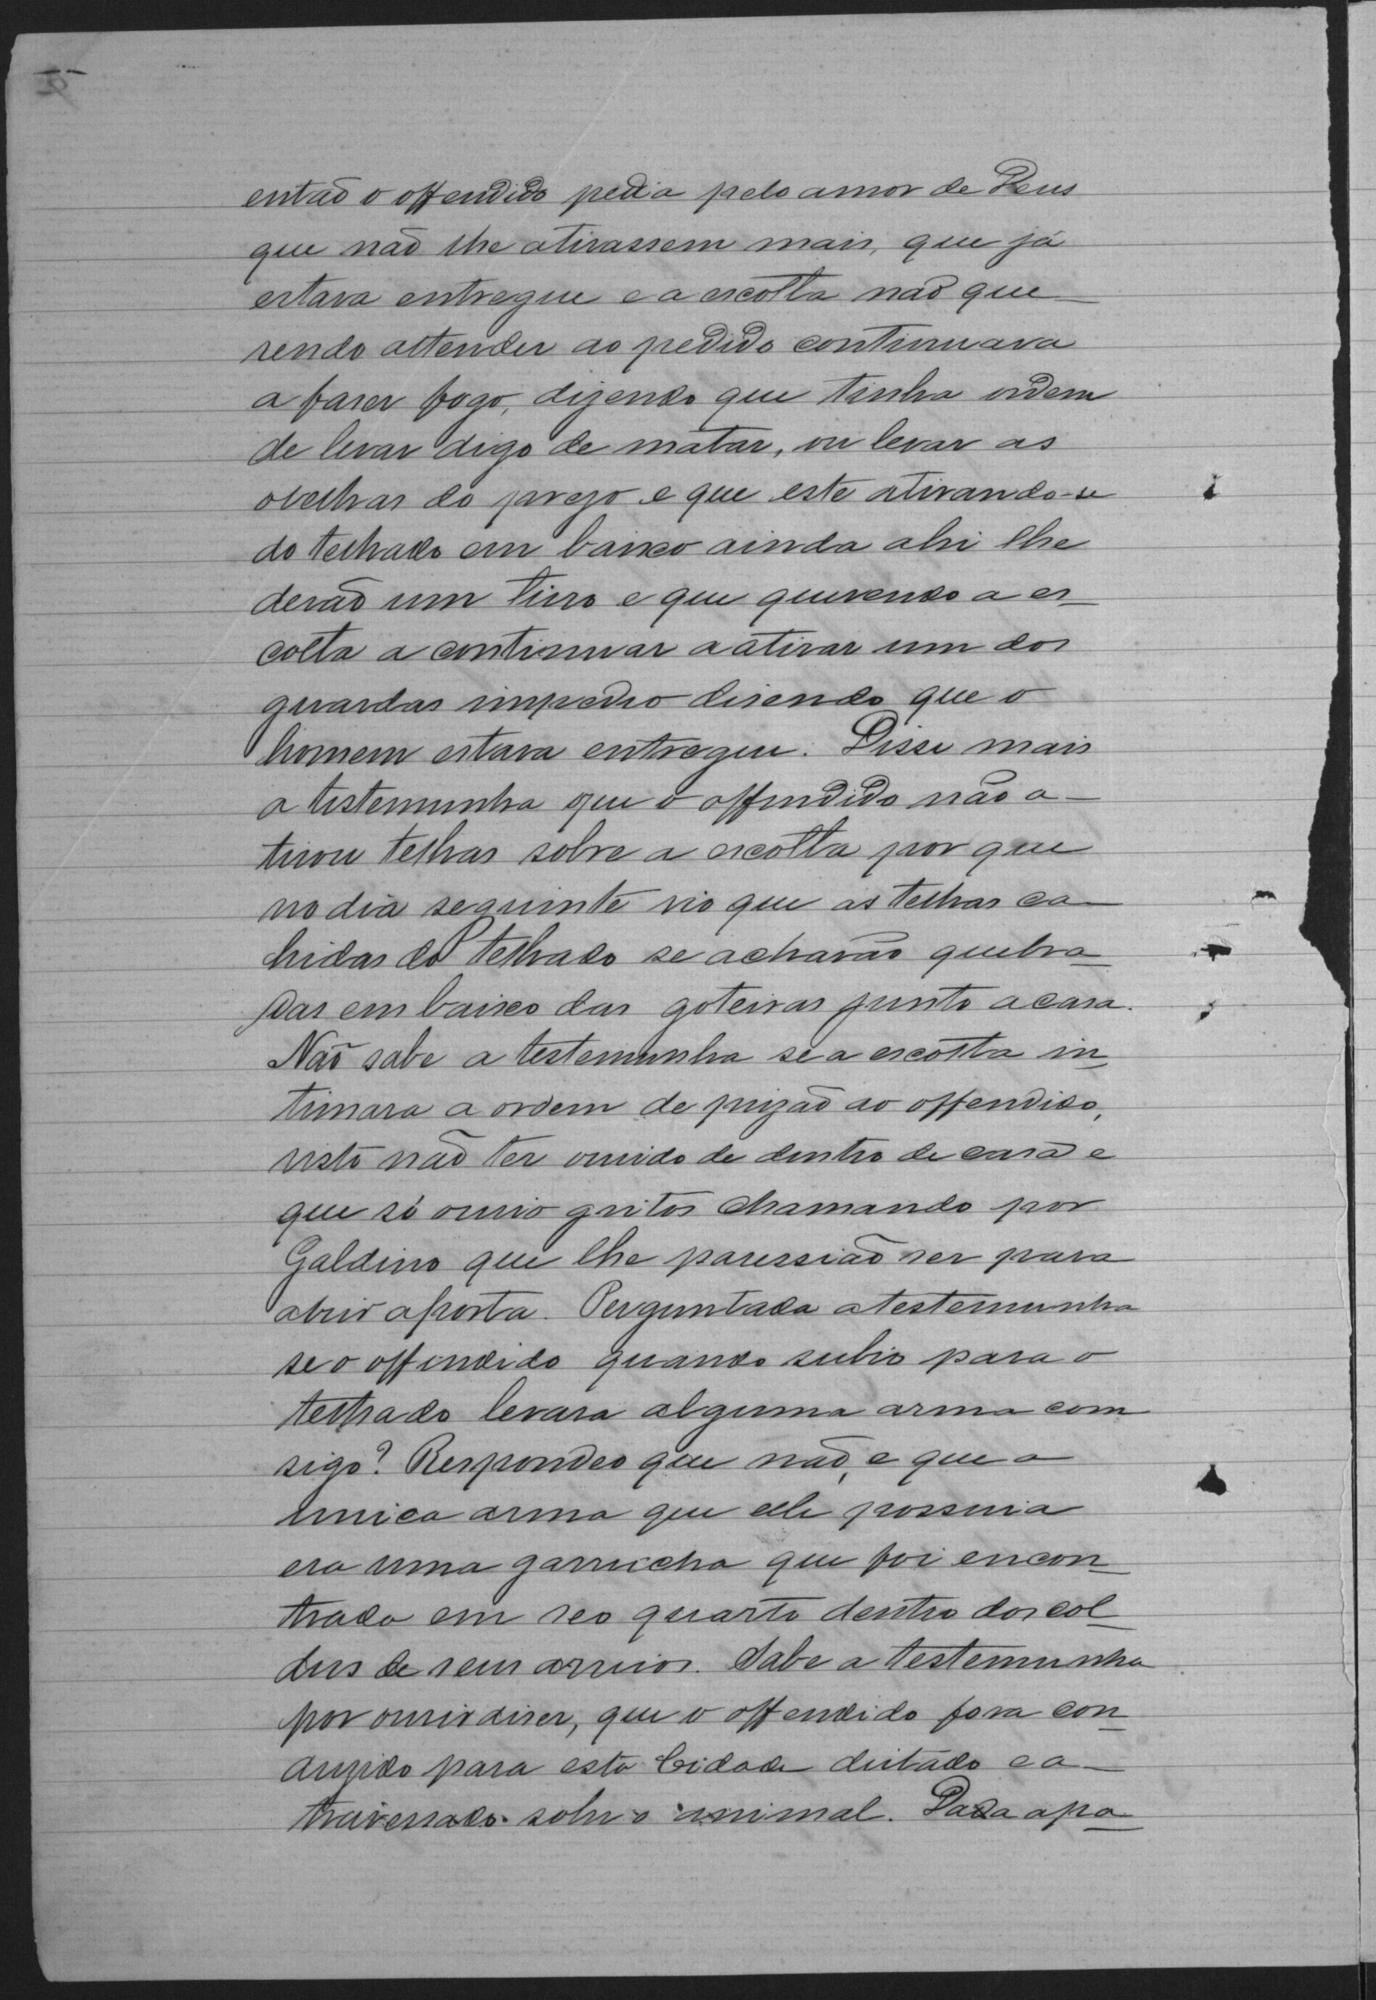 então o offendido pedia pelo amor de Deus
que não lhe atirassem mais, que já
estava entregue e a escolta não que_
rendo attender ao pedido continuava
a faser fogo, dizendo que tinha ordem
de levar digo de matar, ou levar as
orelhas do prezo e que este atirando-se
do telhado em baixo ainda ahi lhe
derão um tiro e que querendo a es_
colta a continuar a atirar um dos
guardas impedio disendo que o
homem estava entregue. Disse mais
a testemunha que o offendido não a_
tirou telhas sobre a escolta por que
no dia seguinte vio que as telhas ca_
hidas do telhado se acharão quebra_
das em baixo das goteiras junto a casa.
Não sabe a testemunha se a escolta in_
timara a ordem de prizão ao offendido,
visto não ter ouvido de dentro de casa e
que só ouvio gritos chamando por
Galdino que lhe paressião ser para
abrir a porta. Perguntada a testemunha
se o offendido quando subio para o
telhado levara alguma arma com
sigo? Respondeo que não, e que a
unica arma que elle possuia
era uma garrucha que foi encon_
trada em seo quarto dentro dos col_
dres de seus arreios. Sabe a testemunha
por ouvir diser, que o offendido fora con_
dusido para esta Cidade deitado e a_
travessado sobre o animal. Dada a pa_